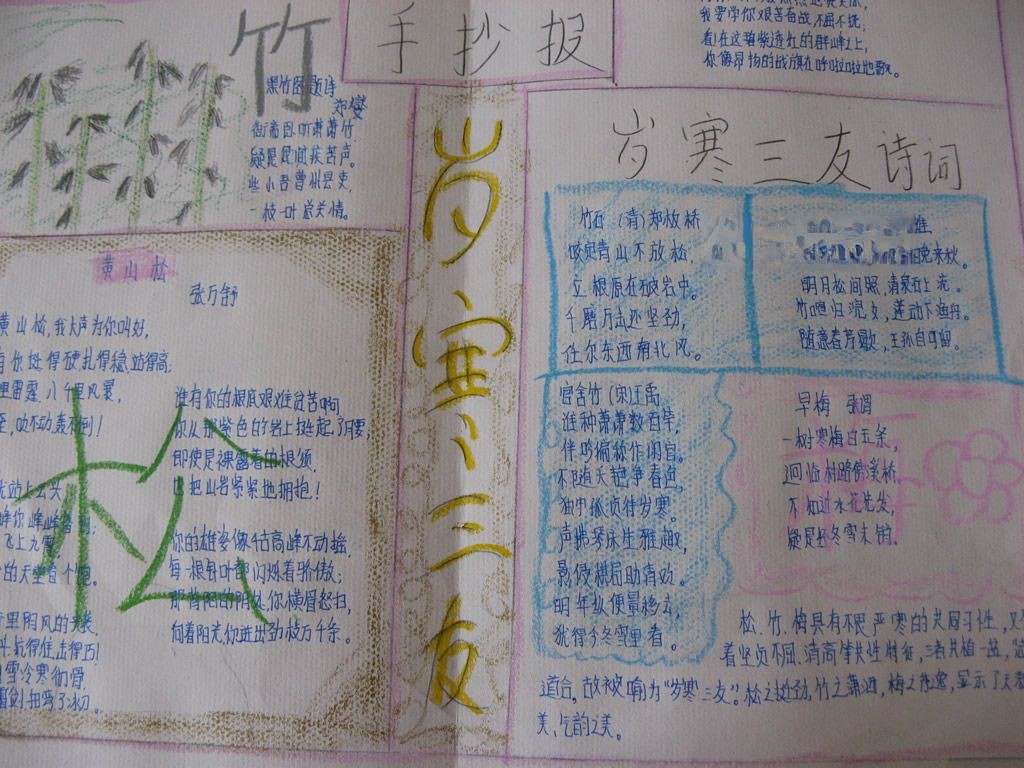 竹
手抄报
我要学你艰苦奋战,不屈不挠;
看!在这碧紫透红的群峰之上,
你像昂扬的战旗在呼啦啦地飘。
墨竹图题诗
郑燮
衙斋卧听萧萧竹
疑是民间疾苦声。
些小吾曹州县吏
一枝一叶总关情。
岁寒三友
黄山松
张万舒
黄山松,我大声为你叫好,
你挺得硬,扎得稳,站得高;
雷霆,八千里风暴,
吹不动,轰不倒!
谁有你的根底艰难贫苦啊
你从那紫色的岩上挺起了腰,
即使是裸露着的根须
也把山岩紧紧地拥抱!
你的雄姿像古高峰不动摇
每一根针叶都闪烁着骄傲;
那背阳的阴处,你横眉怒扫,
向着阳光,你迸出劲枝万千条。
松
岁寒三友诗词
竹石 (清)郑板桥
咬定青山不放松,
立根原在破岩中。
千磨万击还坚劲,
任尔东西南北风。
维
晚来秋。
明月松间照,清泉石上流。
竹喧归浣女,莲动下渔舟。
随意春芳歇,王孙自可留。
官舍竹 (宋)王禹
谁种萧萧数百竿,
伴吟偏称作闲官。
不随夭艳争春色,
独守孤贞待岁寒。
声拂琴床生雅趣,
影侵棋局助清欢。
明年纵便量移去,
犹得今冬雪里看。
早梅 张谓
一树寒梅白玉条,
迥临村路傍溪桥。
不知近水花先发,
疑是经冬雪未销。
松、竹、梅具有不畏严寒的共同习性,
着坚贞不屈、清高
道合,故被喻为“岁寒三友”。松之挺劲,竹之潇洒,梅之
美、气韵之美。